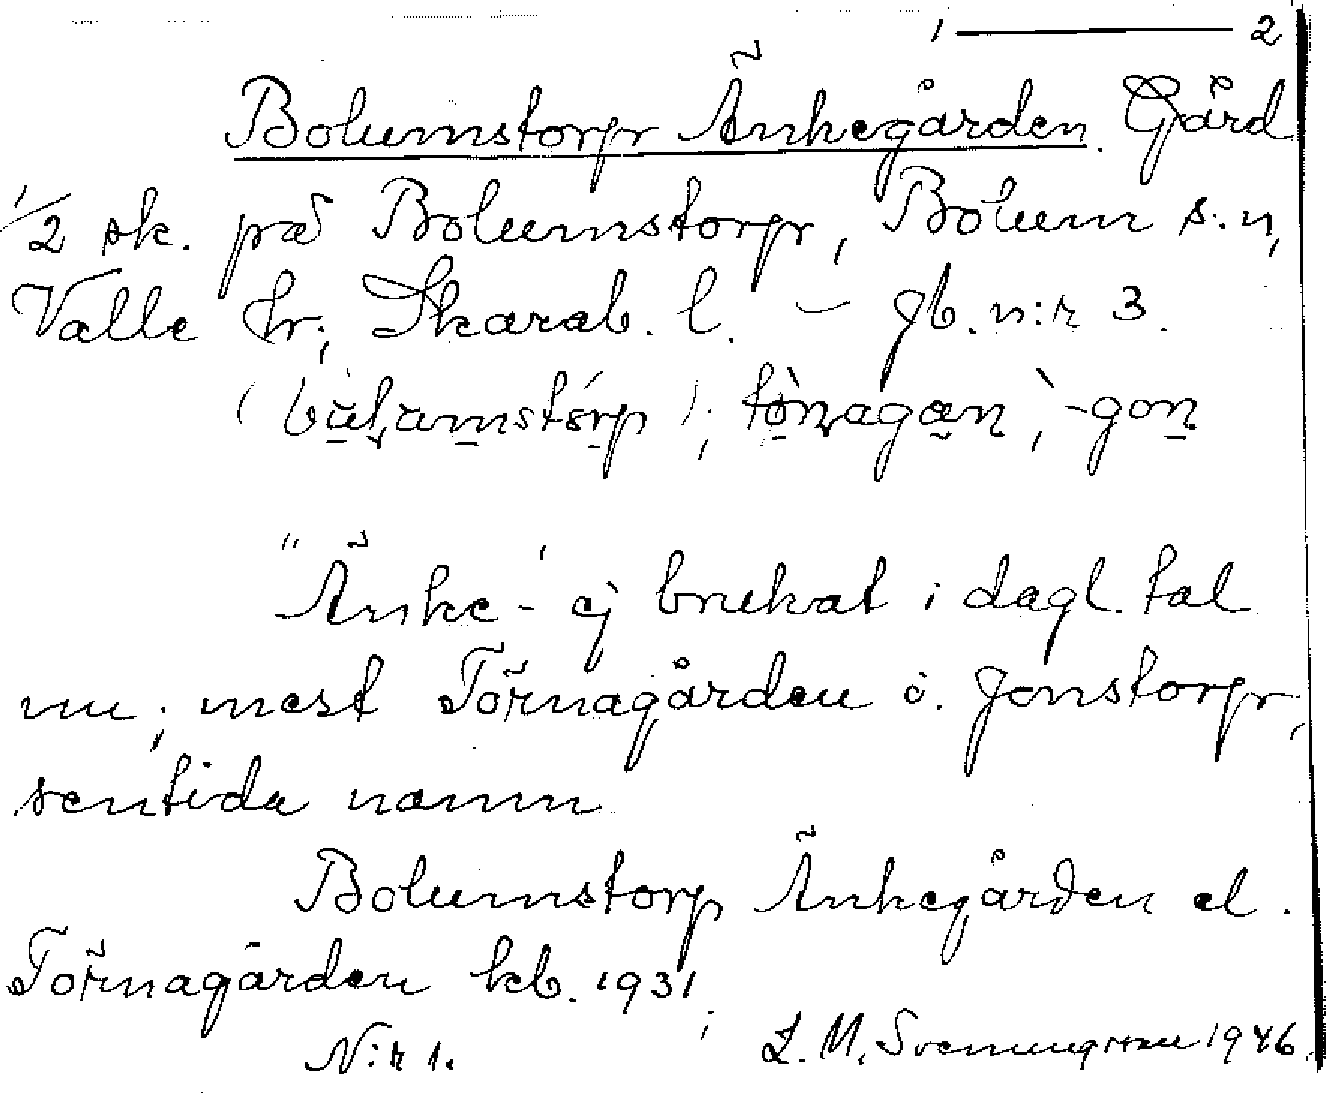 1 — 2
Bolumstorp Änkegården. Gård
1/2 sk. på Bolumstorp, Bolum s:n,
Valle hr; Skarab. l. – jb. n:r 3.
-gon
"Änke-" ej brukat i dagl. tal
nu; mest Törnagården o. Jonstorp,
sentida namn
Bolumstorp Änkegården el.
Törnagården kb. 1931;
N:r 1. L. M. Svenungsson 1946.